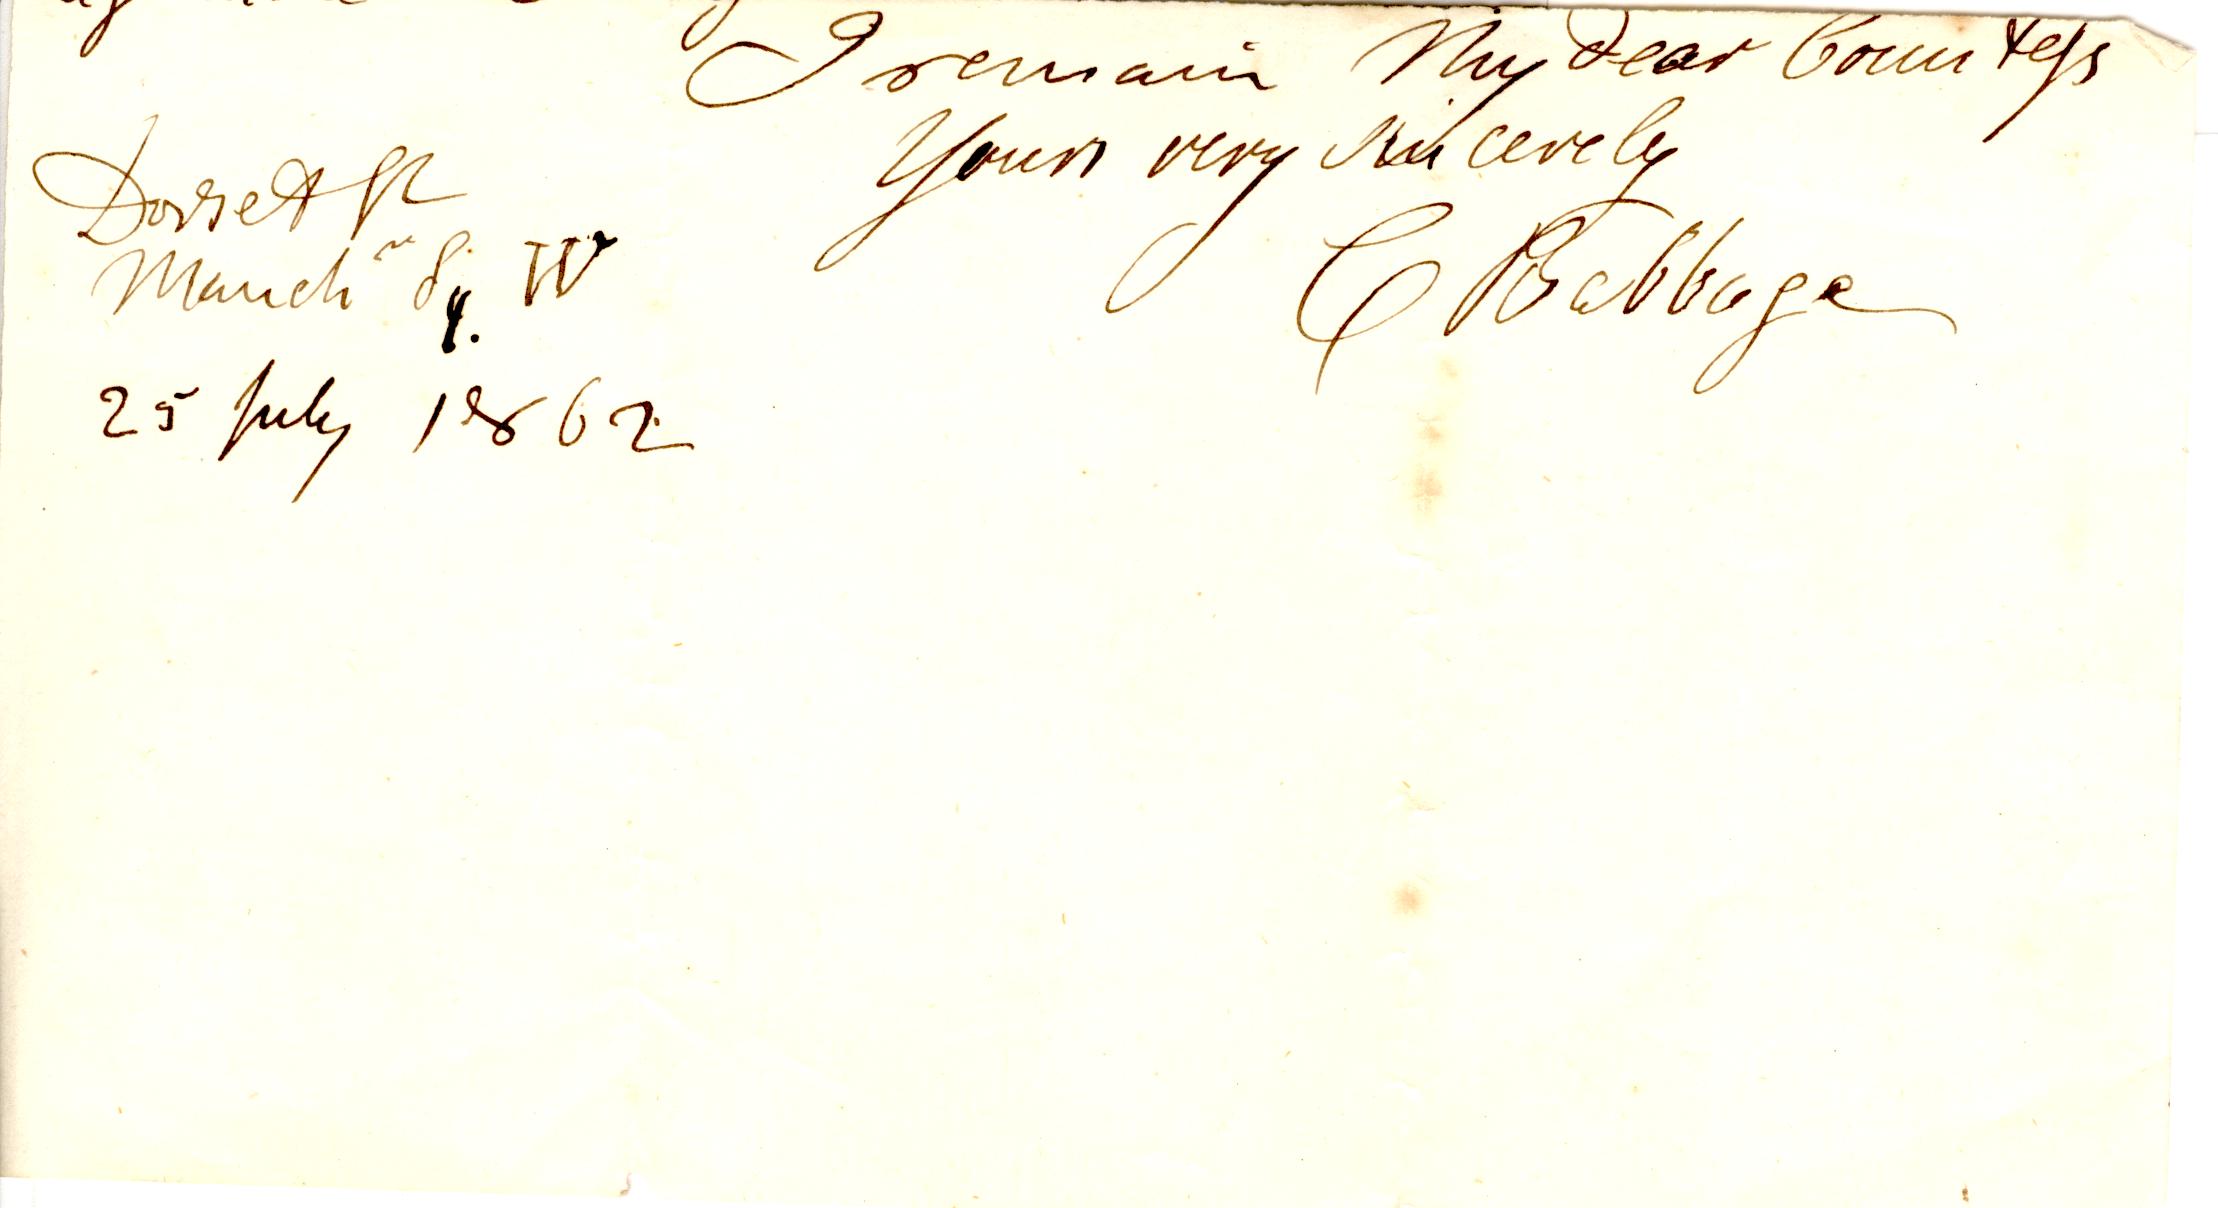 I remain My dear Countess
Yours very sincerely
C Babbage
Dorset St
Manch r Sq. W
25 July 1862